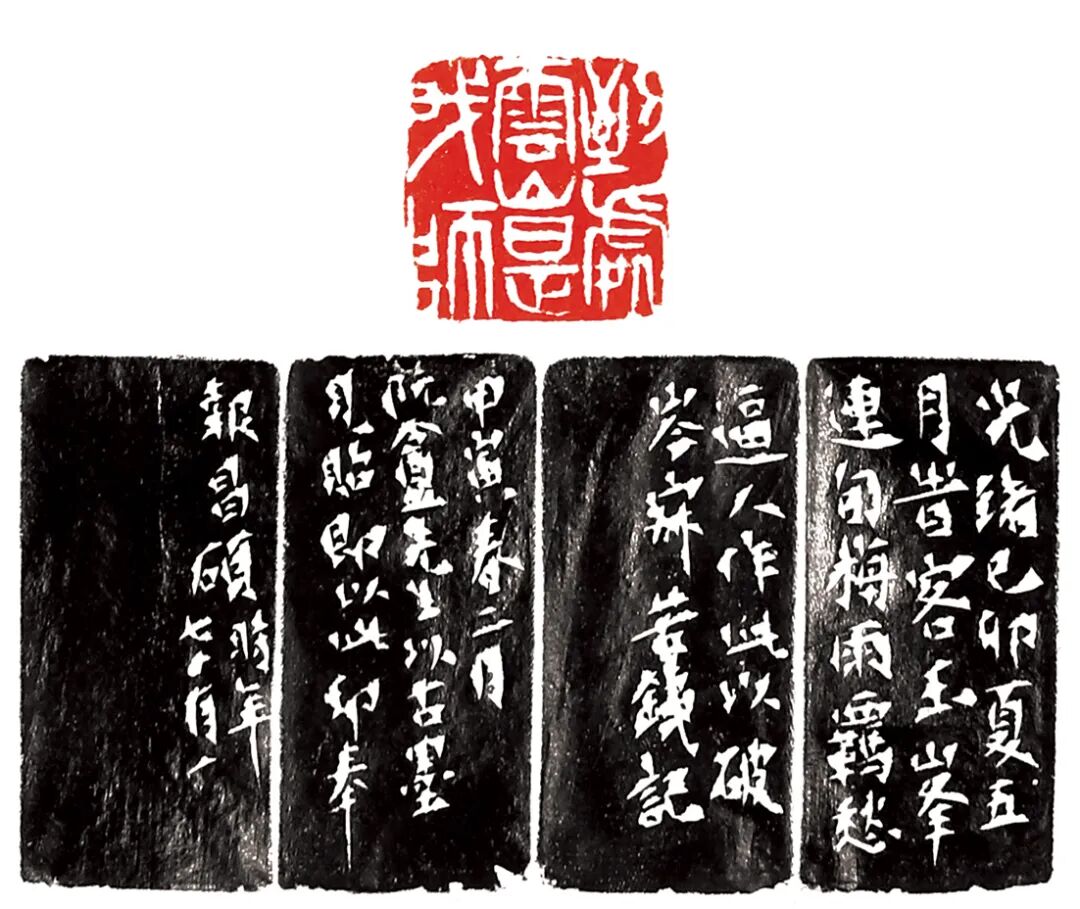 到處
雲山是
我師
光緒己卯夏五
月昔客玉峯
連旬梅雨羈愁
逼人作此以破
岑寂 苦鐵記
甲寅春二月
阮盦先生以古墨
見貽即以此印奉
報昌碩時年
七十有一